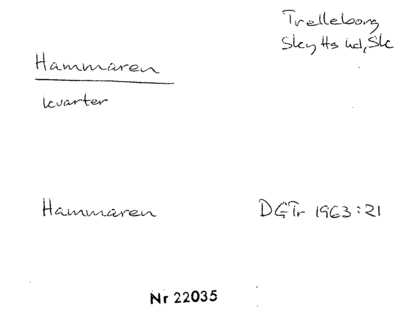 Trelleborg
Skytts hd, Sk
Hammaren
kvarter
Hammaren DGTr 1963:21
Nr 22035